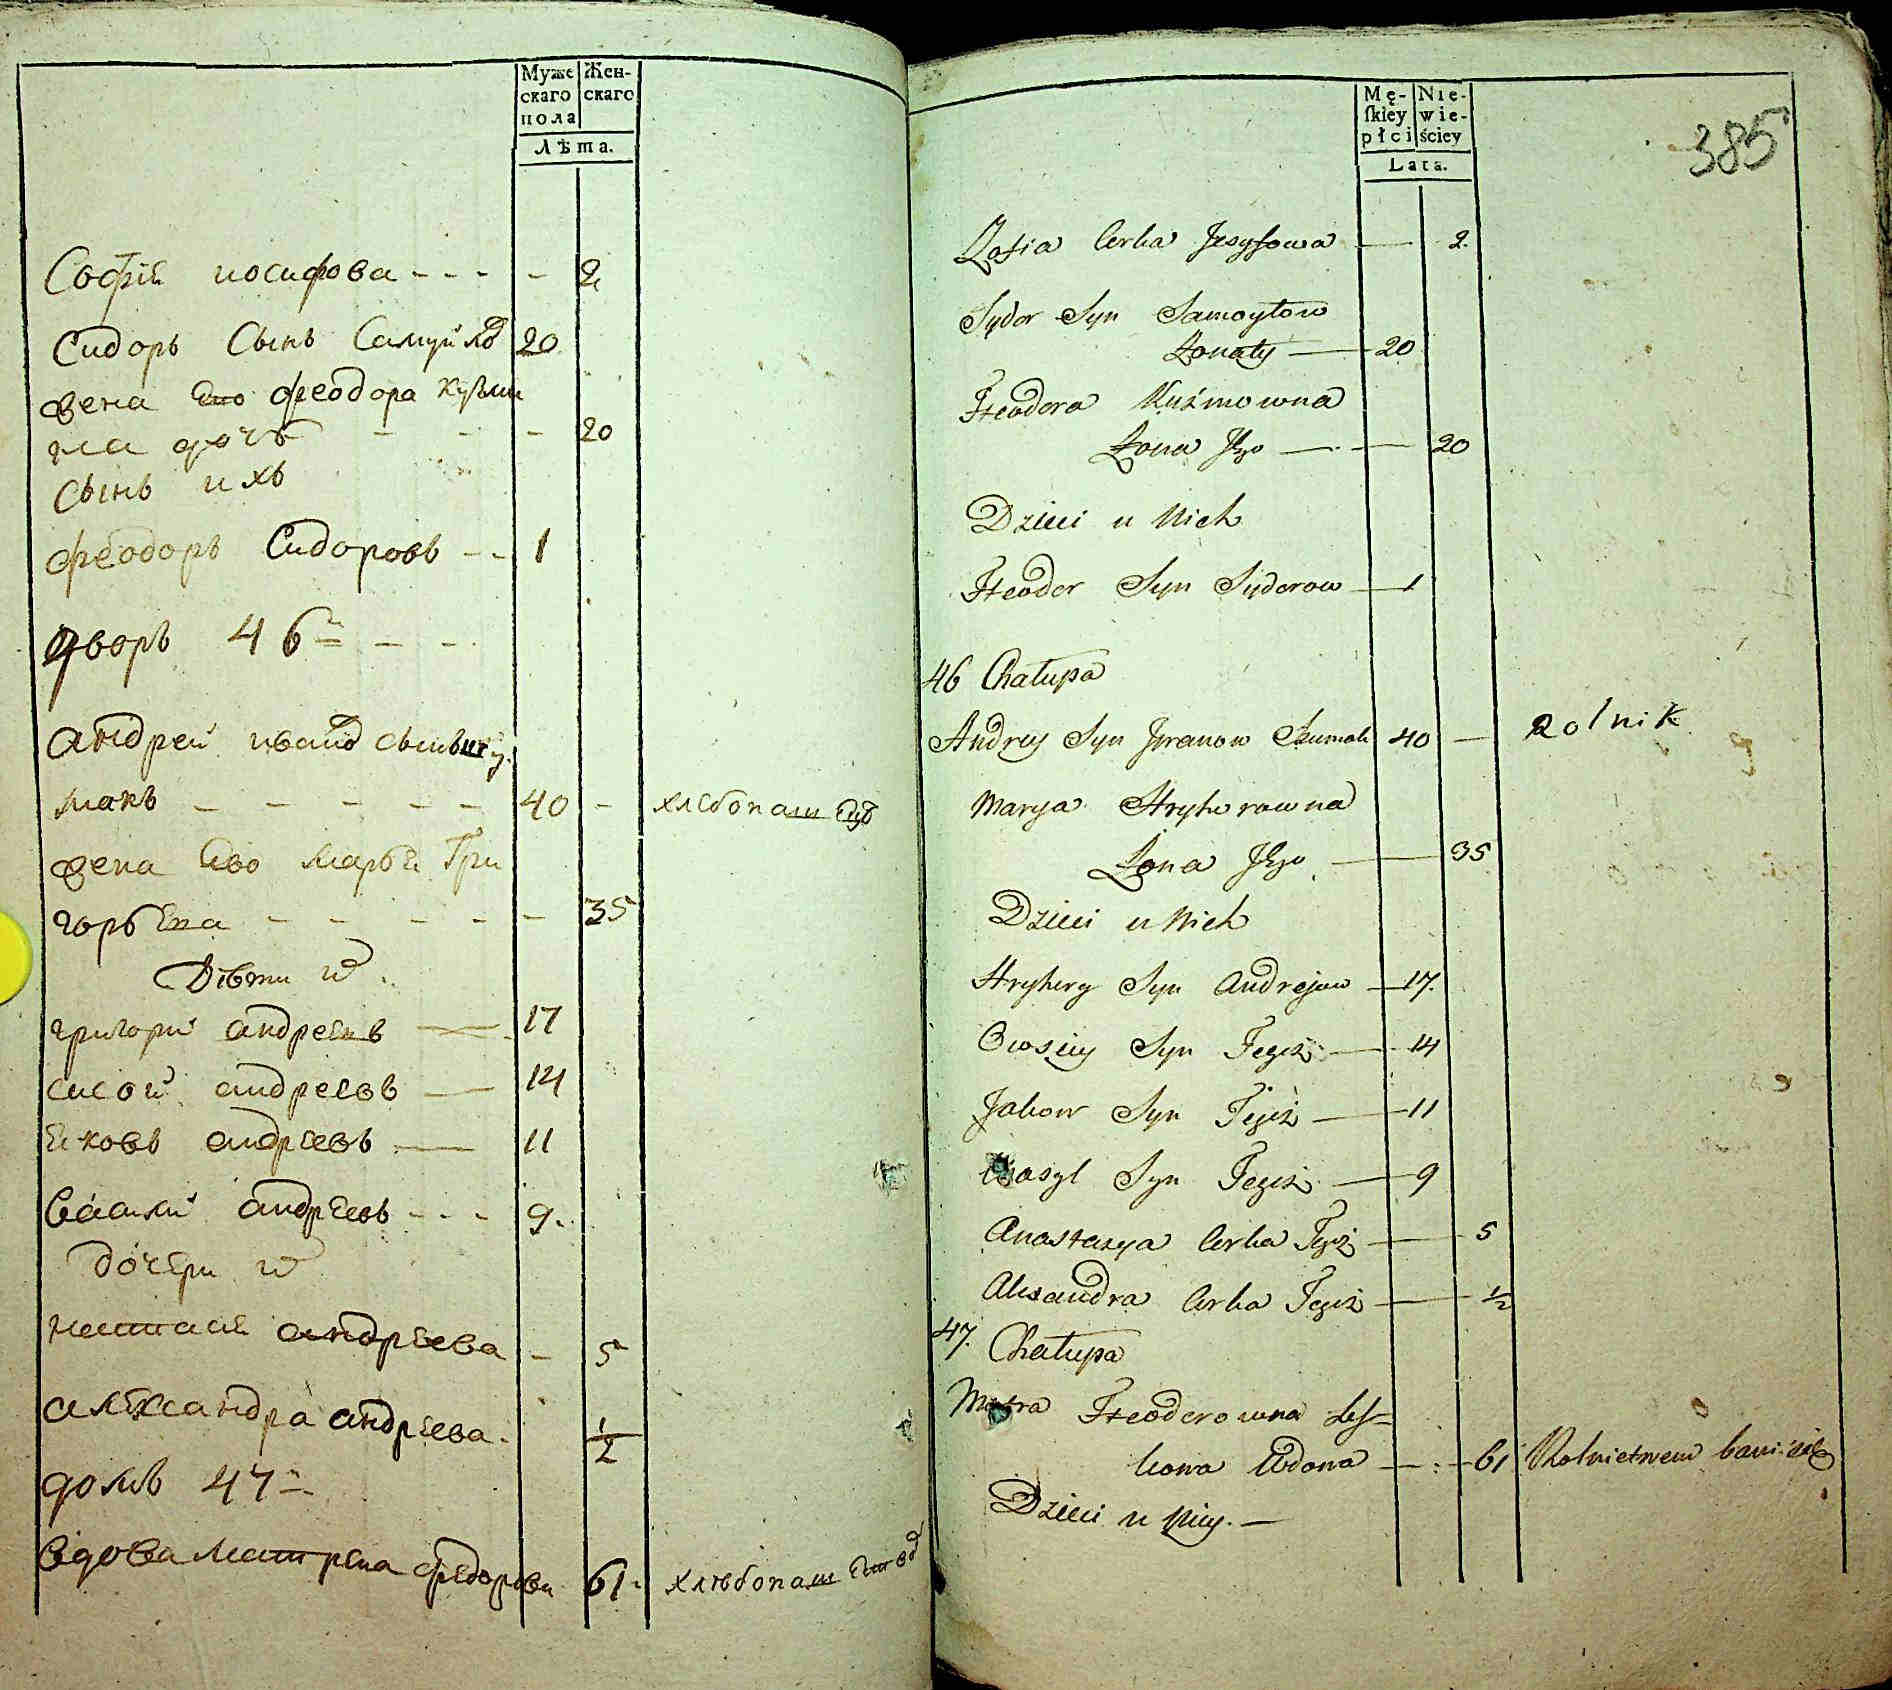 Муже
скаго
пола
Жен-
скаго
Лѣта.
Софіѣ иосифова - - - - 2
Сидоръ Сынъ Самуйлов 20
жена Его феодора Кузми
на дочъ - - - 20
Сынъ ихъ
феодоръ Сидоровъ - - 1
Дворъ 46й - -
андрей иванов сынъ шу
макъ - - - - - 40 - хлебопаш
жена Его Марѣѣ Гри
горѣена - - - - - 35
Дѣти их
григори андреевъ — 17
сисой андреевъ — 14
Ѣковъ андреевъ — 11
Василий андреевъ - - - 9.
дочери их
настасѣ андреева - 5
алеѯандра андреева. 1/2
домъ 47й
вдова матрена федорова 61. хлѣбопаш
Mę-
ſkiey
płci
Nie-
wie-
ściey
Lata.
385
Zofia Corka Jezyfowa — 2.
Sydor Syn Samoyłow
Żonaty — 20
Fteodora Kuźmowna
Żona Jego — 20
Dzieci u Nich
Fteodor Syn Sydorow — 1
46 Chałupa
Andrey Syn Jwanow Szumak 40 — Rolnik
Marya Hryhorowna
Żona Jego — 35
Dzieci u Nich
Hryhory Syn Andrejow — 17.
Owsiey Syn Tegoż — 14
Jakow Syn Tegoż — 11
Wasyl Syn Tegoż — 9
Anastazya Corka Tegoż — 5
Alexandra Corka Tegoż — 1/2
47. Chałupa
Motra Fteodorowna
kowa Wdowa — 61 Rolnictwem bawi się
Dzieci u Niey. —